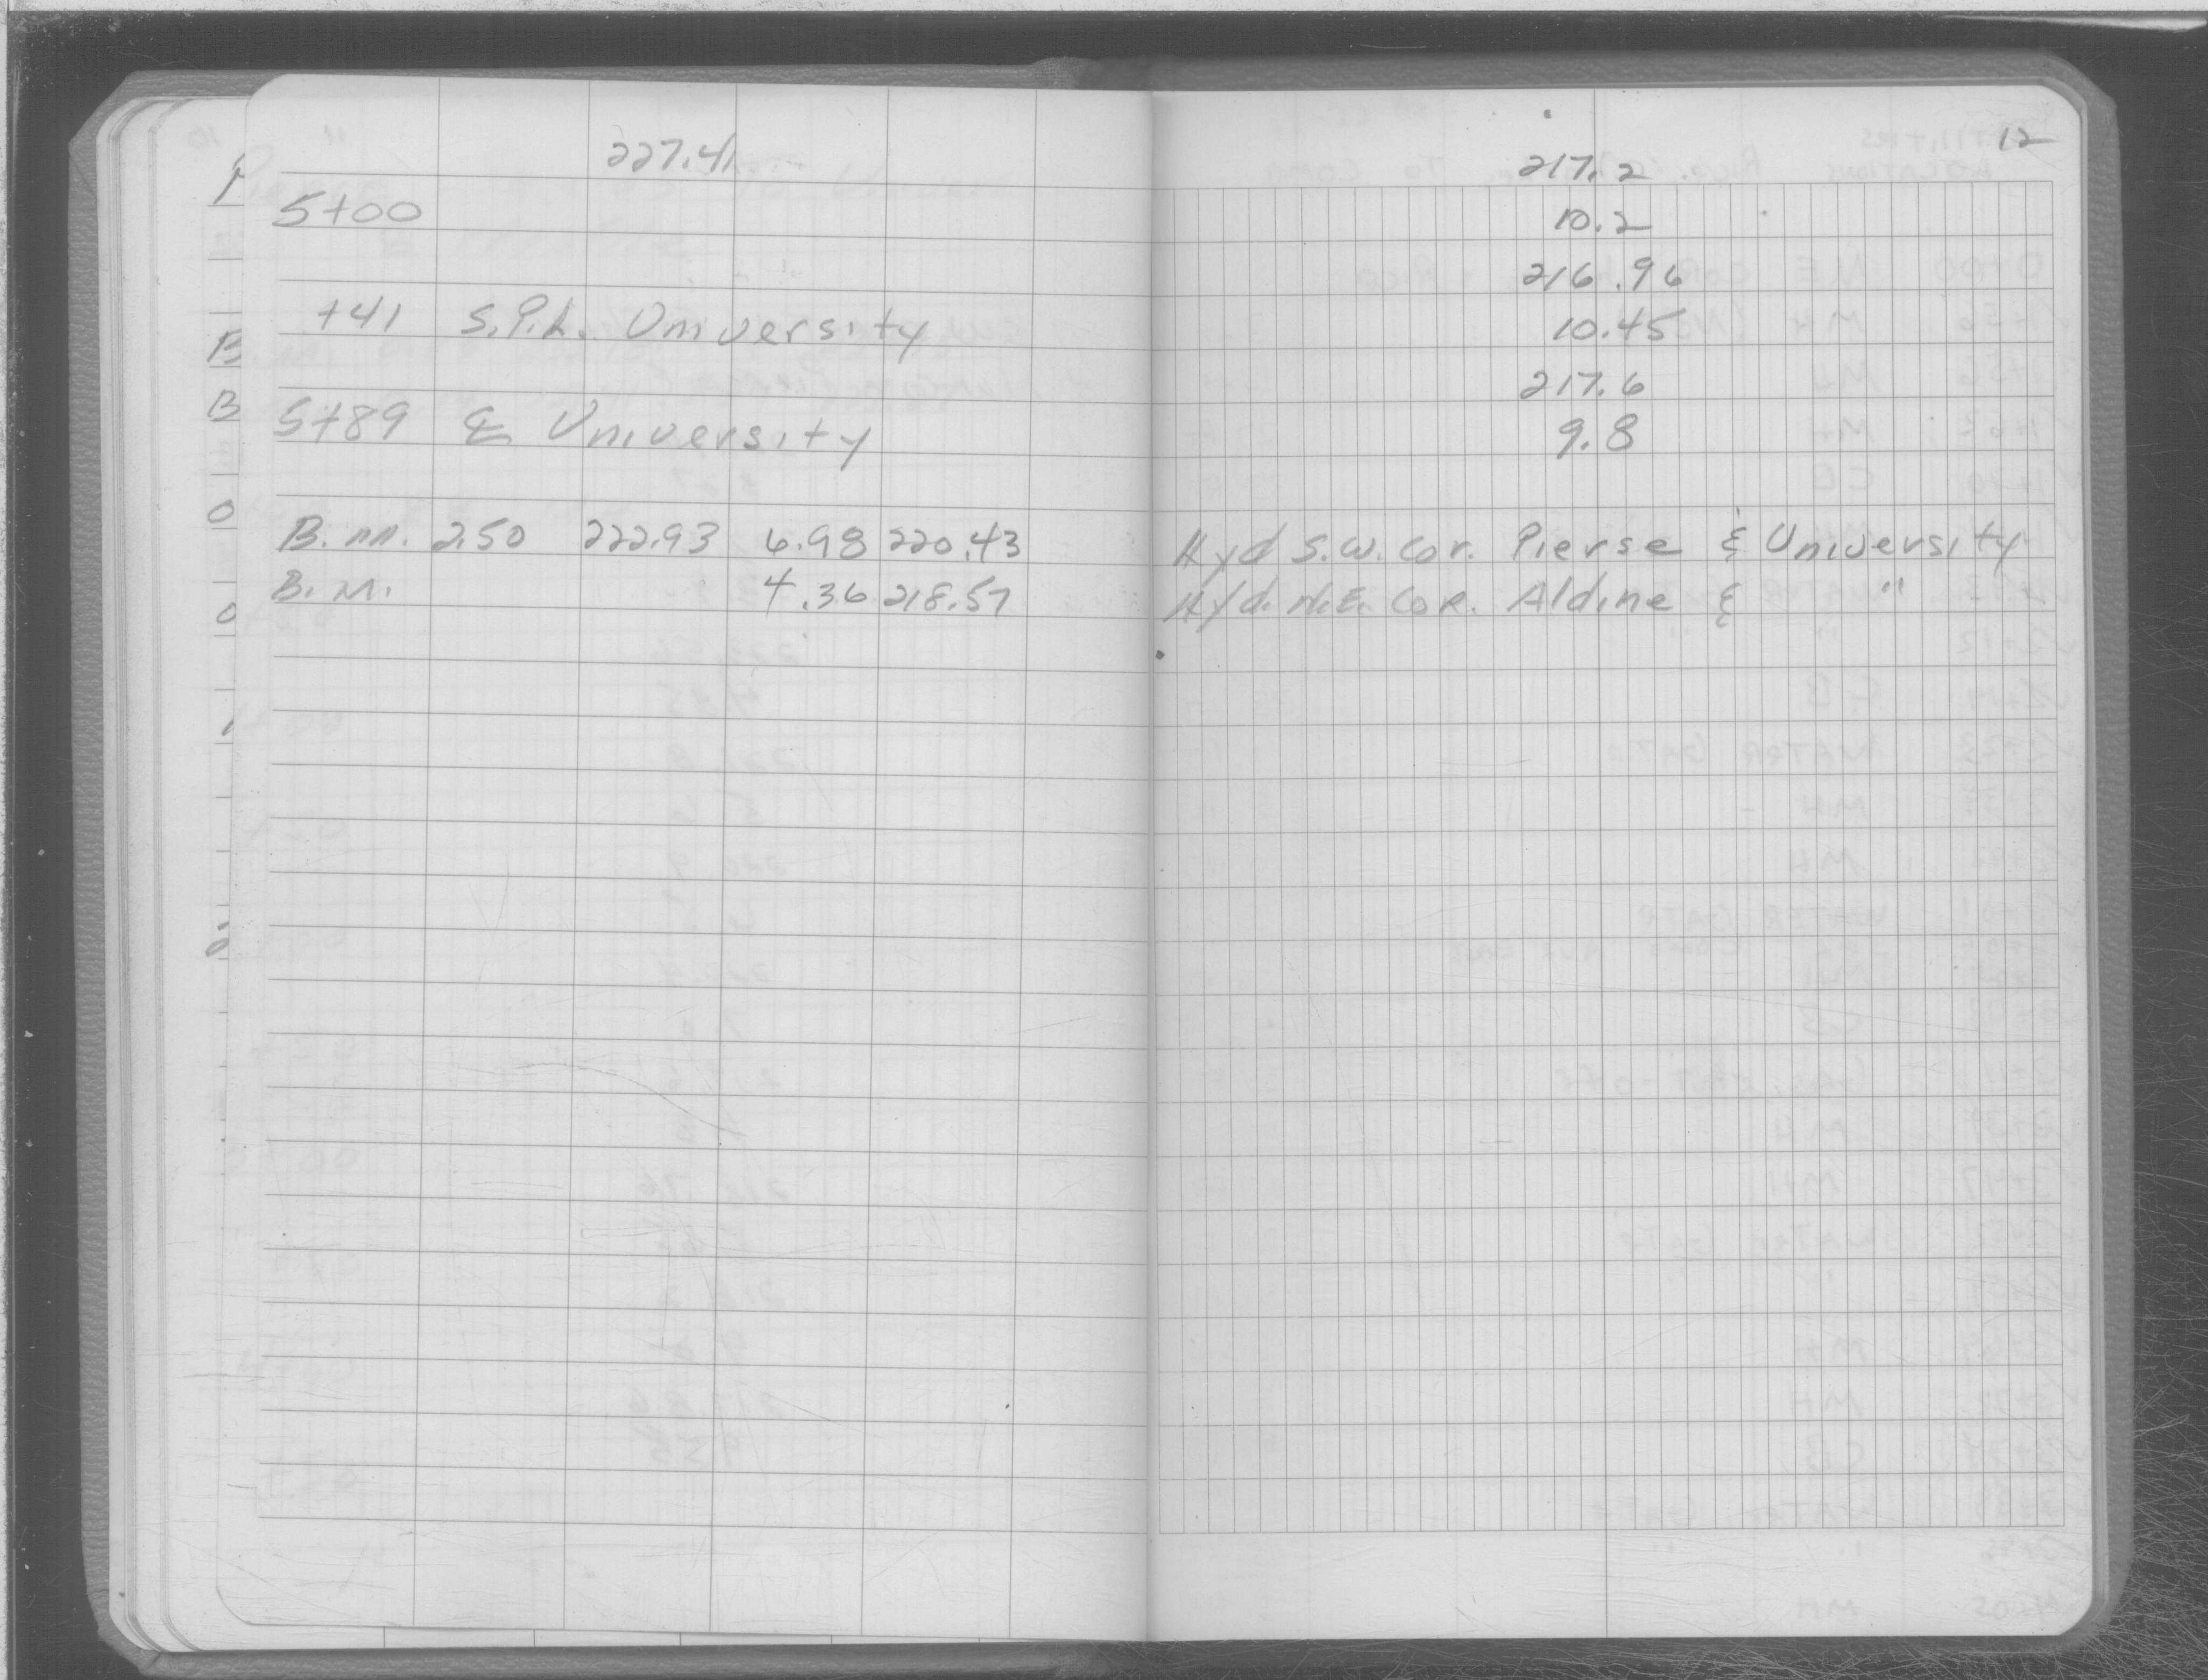 227.41
5+00
+41 S.P.L. University
5+89 ℄ University
B.M. 2.50 222.93 6.98 220.43
B.M. 4.36 218.57
12
217.2
10.2
216.96
10.45
217.6
9.8
Hyd S.W. Cor. Pierse & University
Hyd. N.E. Cor. Aldine & "